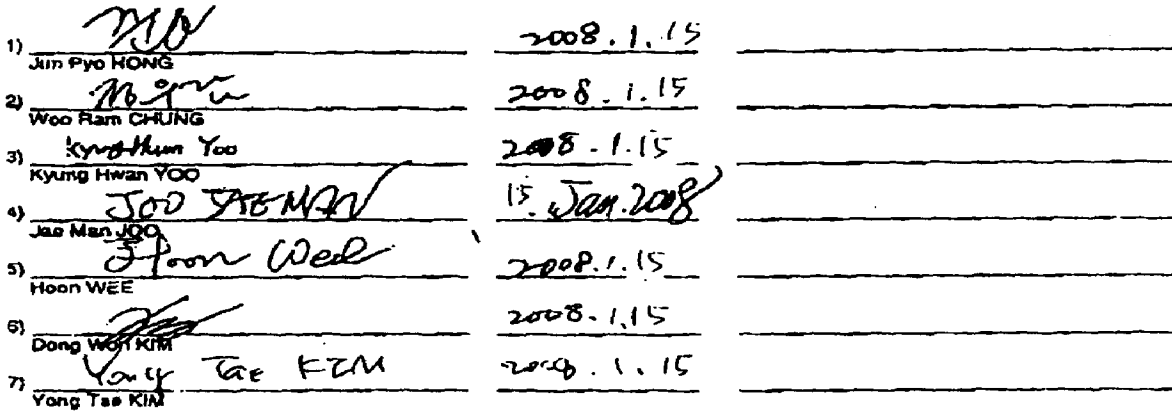 1) 2008.1.15
Jun Pyo HONG
2) 2008.1.15
Woo Ram CHUNG
3) Kyung Hwan Yoo 2008.1.15
Kyung Hwan YOO
4) JOO JAE MAN 15. Jan. 2008
Jae Man JOO
5) Hoon Wee 2008.1.15
Hoon WEE
6) 2008.1.15
Dong Won KIM
7) Yong Tae KIM 2008.1.15
Yong Tae KIM